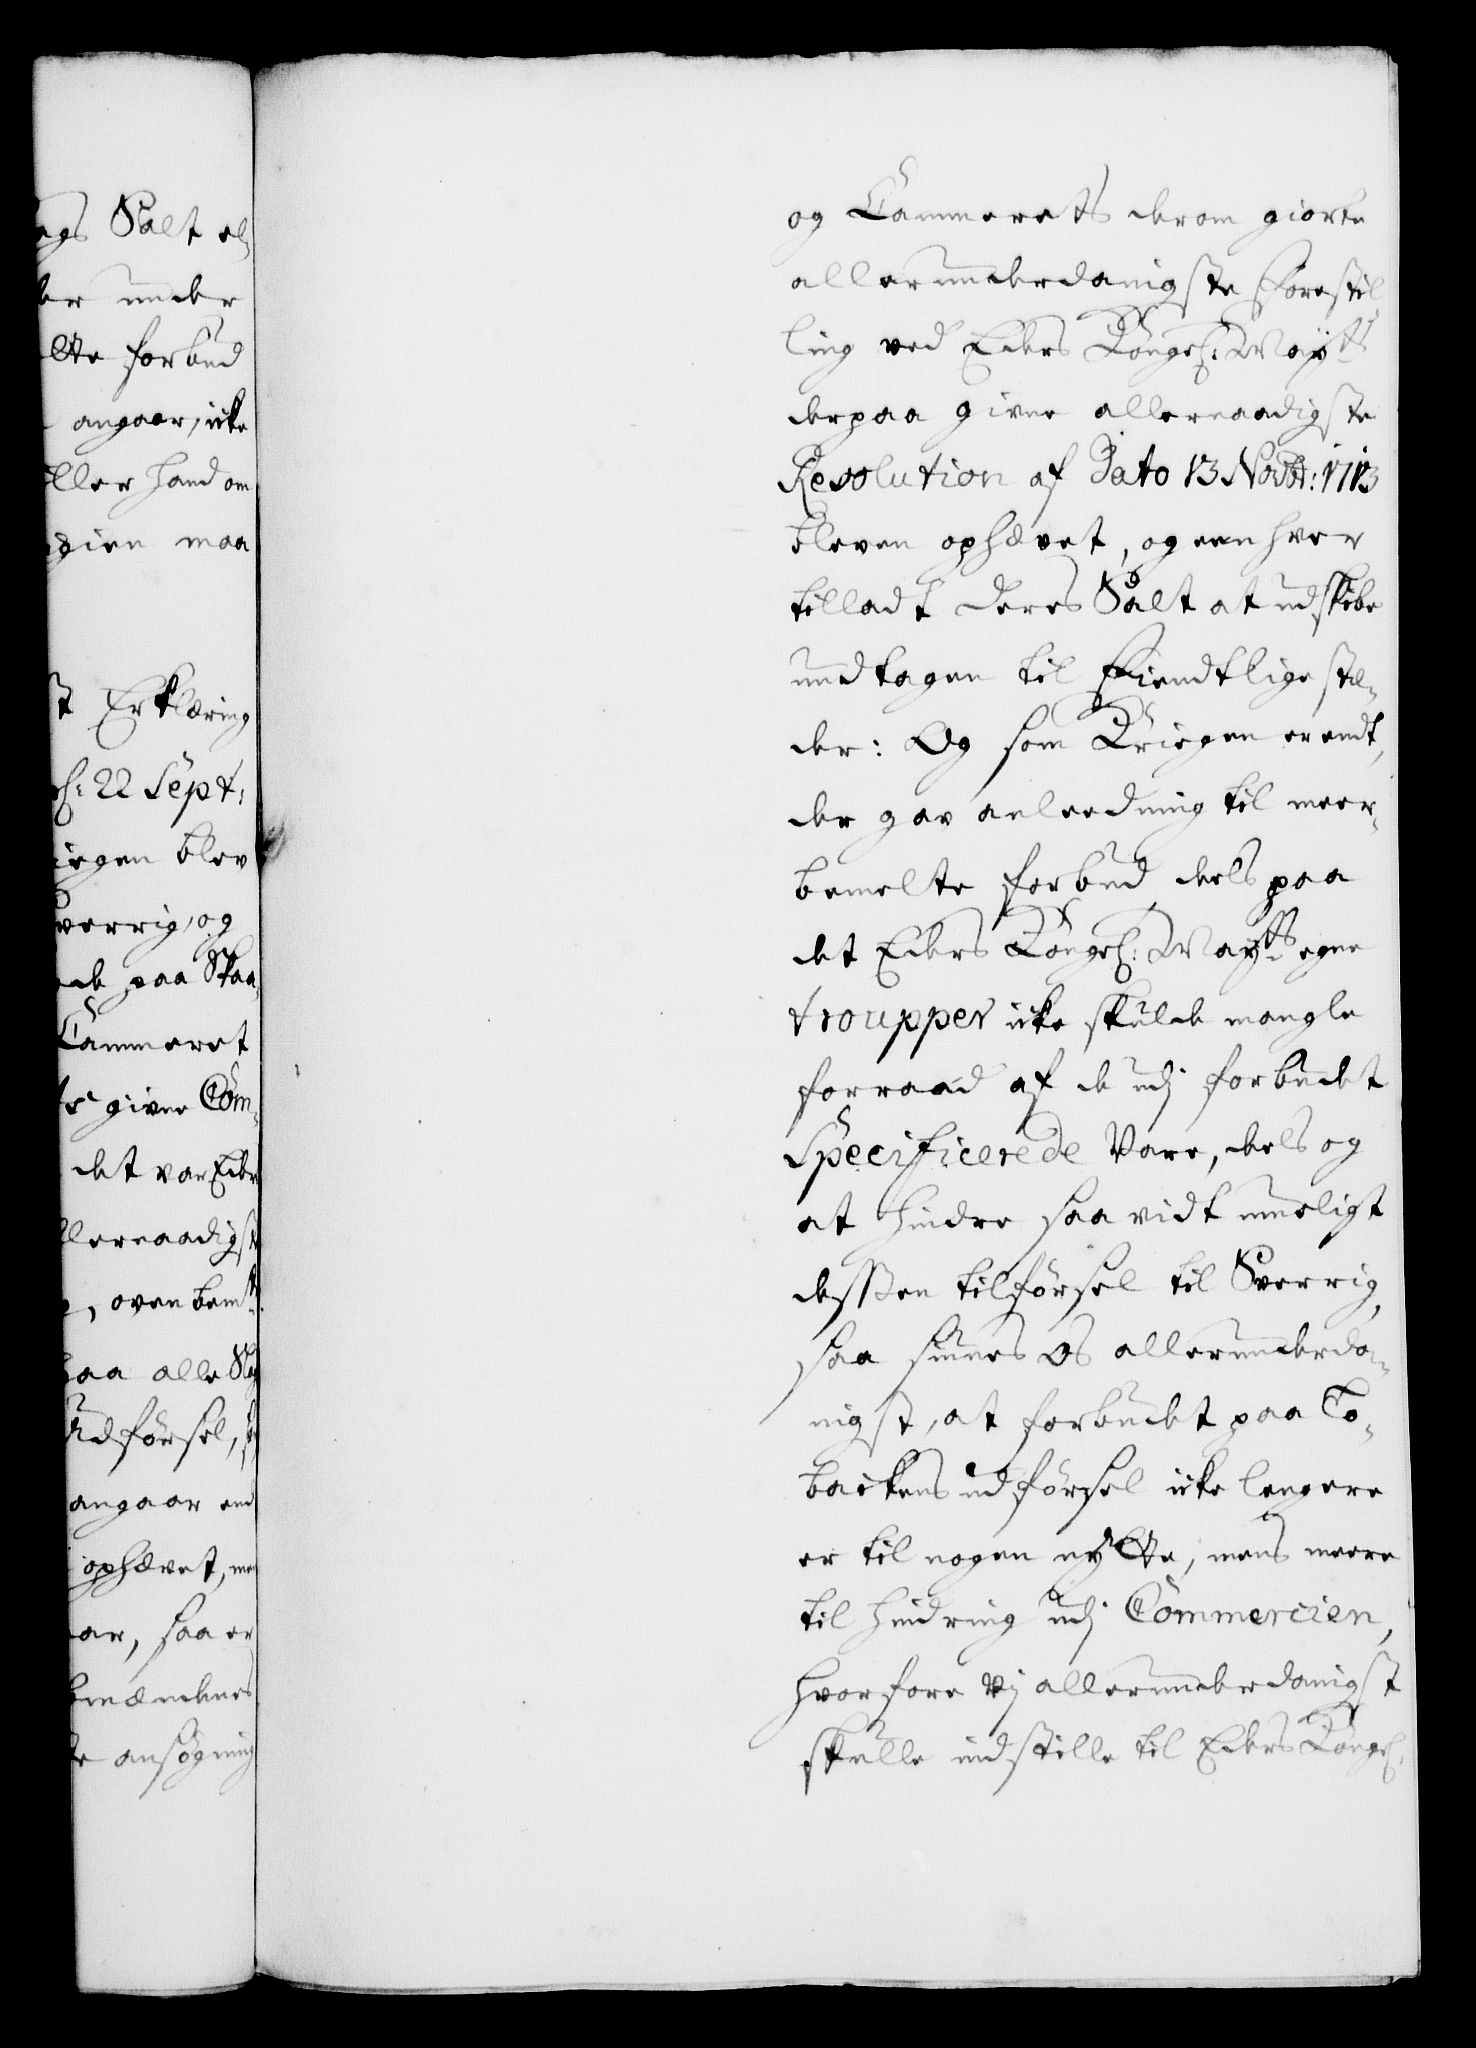 ags Salt el,
er under
lte forbud
angaar, icke
ller hand om
gien maa
st Erklæring
h: 22 Sept:
iegen blev
verrig, og
de paa Staa,
Cammeret
givne Com,
det var Eders
llernaadigste
, ovenbemte
paa alle Slag
Udförsel,
angaar end
ophævet, men
ar, saa er
bmændenes
te ansögning
og Cammerets derom giorte
allerunderdanigste Forestil
ling ved Eders Kongel: Mayts
derpaa givne allernaadigste
Resolution af Dato 13 Novbr: 1713
bleven ophævet, og een hver
tilladt deres Salt at udskibe
undtagen til Fiendtlige stæ,
der: Og som Kriegen er endt,
der gav anleedning til meer,
bemelte forbud deels paa
det Eders Kongel: Mayts egne
troupper icke skulde mangle
forraad af de udj forbudet
Specificerede Vare, deels og
at hindre saa vidt mueligt
dessen tilförsel til Sverrig,
saa siunes os allerunderda,
nigst, at forbudet paa To,
backens udförsel icke lengere
er til nogen nytte, mens meere
til hindring udj Commercien,
hvorfore Vj allerunderdanigst
skulle indstille til Eders Kongel: